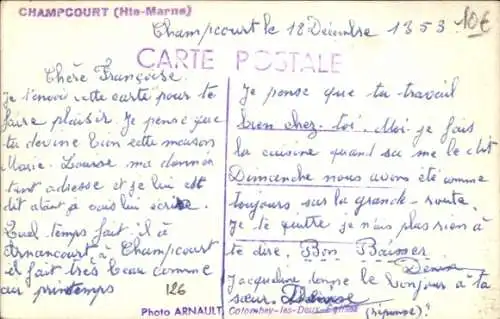 CHAMPCOURT (Hte-Marne)
Champcourt le 18 Décembre 1953
10€
CARTE POSTALE
Chère Françoise.
Je t'envoi cette carte pour te
faire plaisir. Je pense que
tu devine bien cette maison
Marie. Louise ma donner
tant adresse et je lui est
dit alant à vais lui écrire.
Quel temps fait il à
Arnancourt à Champcourt
il fait très beau comme
au printemps
126
Je pense que tu travail
bien chez. toi. Moi je fais
la cuisine quand sa me le dit
Dimanche nous avons été comme
toujours sur la grande route.
Je te quitte je n'ais plas rien à
te dire. Bon Baiser
Denise
Jacqueline donne le bonjour à ta
sœur. Denise
(réponse)!
Photo ARNAULT, Colombey-les-Deux-Eglises